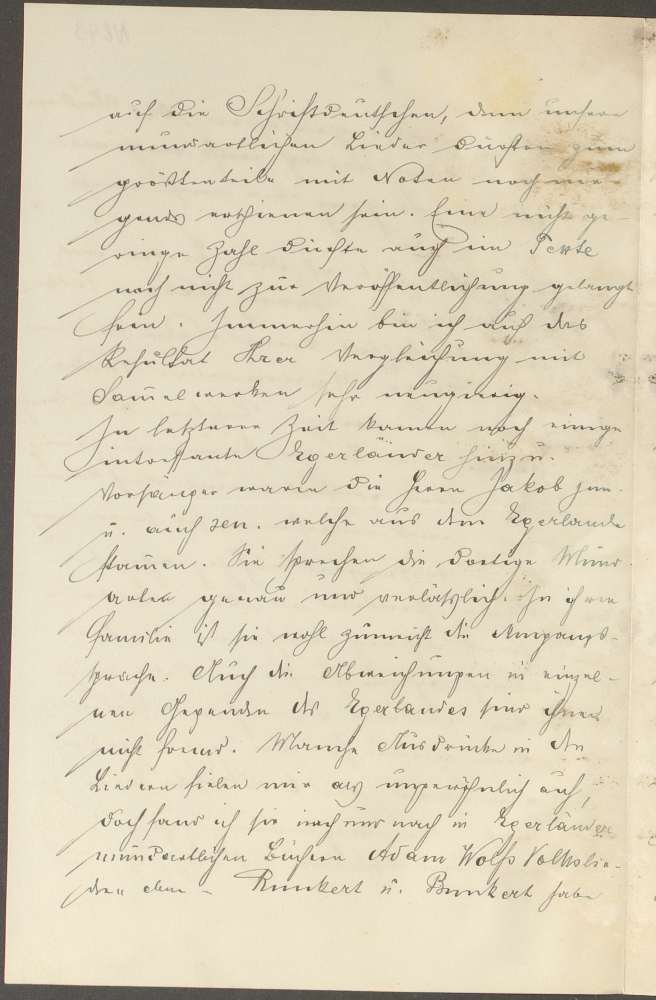 auf die Schriftdeutschen, denn unsere
mundartlichen Lieder dürften zum
größtenteile mit Noten noch nir-
gends erschienen sein. Eine nicht ge-
ringe Zahl dürfte auch im Texte
noch nicht zur Veröffentlichung gelangt
sein. Immerhin bin ich auf das
Resultat Ihrer Vergleichung mit
Sam̅elwerken sehr neugierig.
In letzterer Zeit kamen noch einige
interessante Egerländer hinzu.
Vorsänger waren die Herren Jakob jun.
u. auch sen. welche aus dem Egerlande
stam̅en. Sie sprechen die dortige Mund-
arten genau und verläßlich. In ihrer
Familie ist sie wohl zumeist die Umgangs-
sprache. Auch die Abweichungen in einzel-
nen Gegenden des Egerlandes sind ihnen
nicht fremd. Manche Ausdrücke in den
Liedern fielen mir als ungewöhnlich auf,
doch fand ich sie nach und nach in Egerländer
mundartlichen Büchern Adam Wolfs Volkslie-
der - u. habe